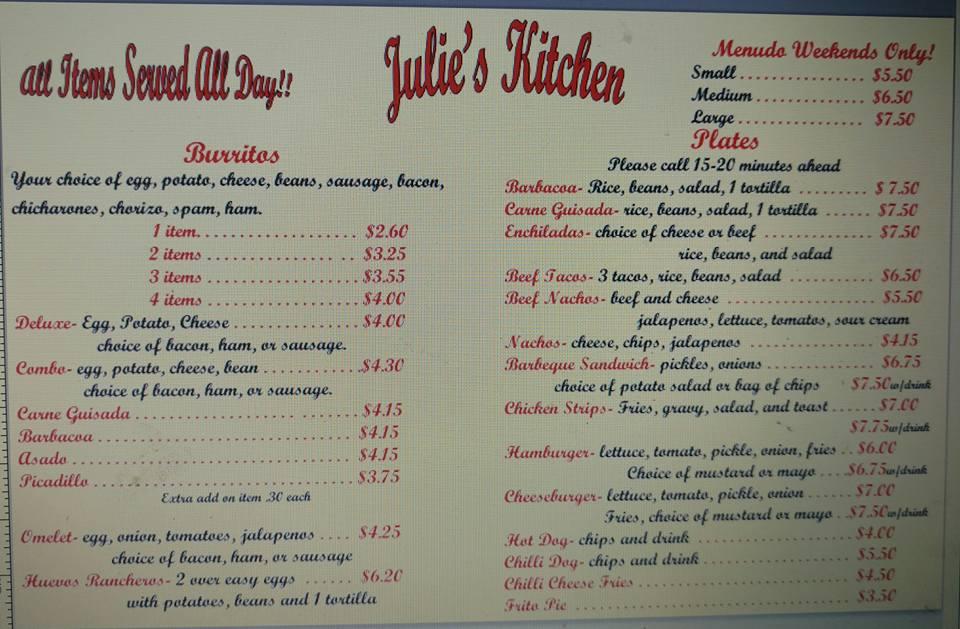 all Items Served All Day!!
Julie's Kitchen
Menudo Weekends Only!
Small ................ $5.50
Medium .............. $6.50
Large ................ $7.50
Burritos
Your choice of egg, potato, cheese, beans, sausage, bacon,
chicharones, chorizo, spam, ham.
1 item. .................. $2.60
2 items ................. $3.25
3 items .................. $3.55
4 items .................. $4.00
Deluxe- Egg, Potato, Cheese ............... $4.00
choice of bacon, ham, or sausage.
Combo- egg, potato, cheese, bean ............ $4.30
choice of bacon, ham, or sausage.
Carne Guisada .......................... $4.15
Barbacoa .............................. $4.15
Asado ................................ $4.15
Picadillo .............................. $3.75
Extra add on item .30 each
Omelet- egg, onion, tomatoes, jalapenos .... $4.25
choice of bacon, ham, or sausage
Huevos Rancheros- 2 over easy eggs ...... $6.20
with potatoes, beans and 1 tortilla
Plates
Please call 15-20 minutes ahead
Barbacoa- Rice, beans, salad, 1 tortilla ......... $ 7.50
Carne Guisada- rice, beans, salad, 1 tortilla ...... $7.50
Enchiladas- choice of cheese or beef .............. $7.50
rice, beans, and salad
Beef Tacos- 3 tacos, rice, beans, salad ........... $6.50
Beef Nachos- beef and cheese .................. $5.50
jalapenos, lettuce, tomatos, sour cream
Nachos- cheese, chips, jalapenos ................ $4.15
Barbeque Sandwich- pickles, onions .............. $6.75
choice of potato salad or bag of chips $7.50w/drink
Chicken Strips- Fries, gravy, salad, and toast ...... $7.00
$7.75w/drink
Hamburger- lettuce, tomato, pickle, onion, fries .. $6.00
Choice of mustard or mayo ....$6.75w/drink
Cheeseburger- lettuce, tomato, pickle, onion ...... $7.00
Fries, choice of mustard or mayo ..$7.50w/drink
Hot Dog- chips and drink .................... $4.00
Chilli Dog- chips and drink ................... $5.50
Chilli Cheese Fries .......................... $4.50
Frito Pie .................................. $3.50